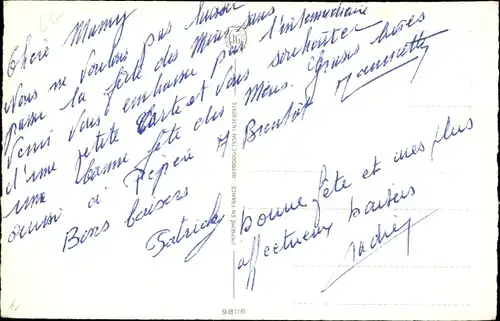 Chère Mamy
Nous ne voulons pas laisser
passer la fête des Mères sans
venir vous embrasser par l'intermédiaire
d'une petite Carte et vous souhaiter
une bonne fête des Mères. Grosses bises
aussi à Pépère A Bientôt
Bons baisers
Patrick
bonne fête et mes plus
affectueux baisers
IMPRIMÉ EN FRANCE. REPRODUCTION INTERDITE
98116